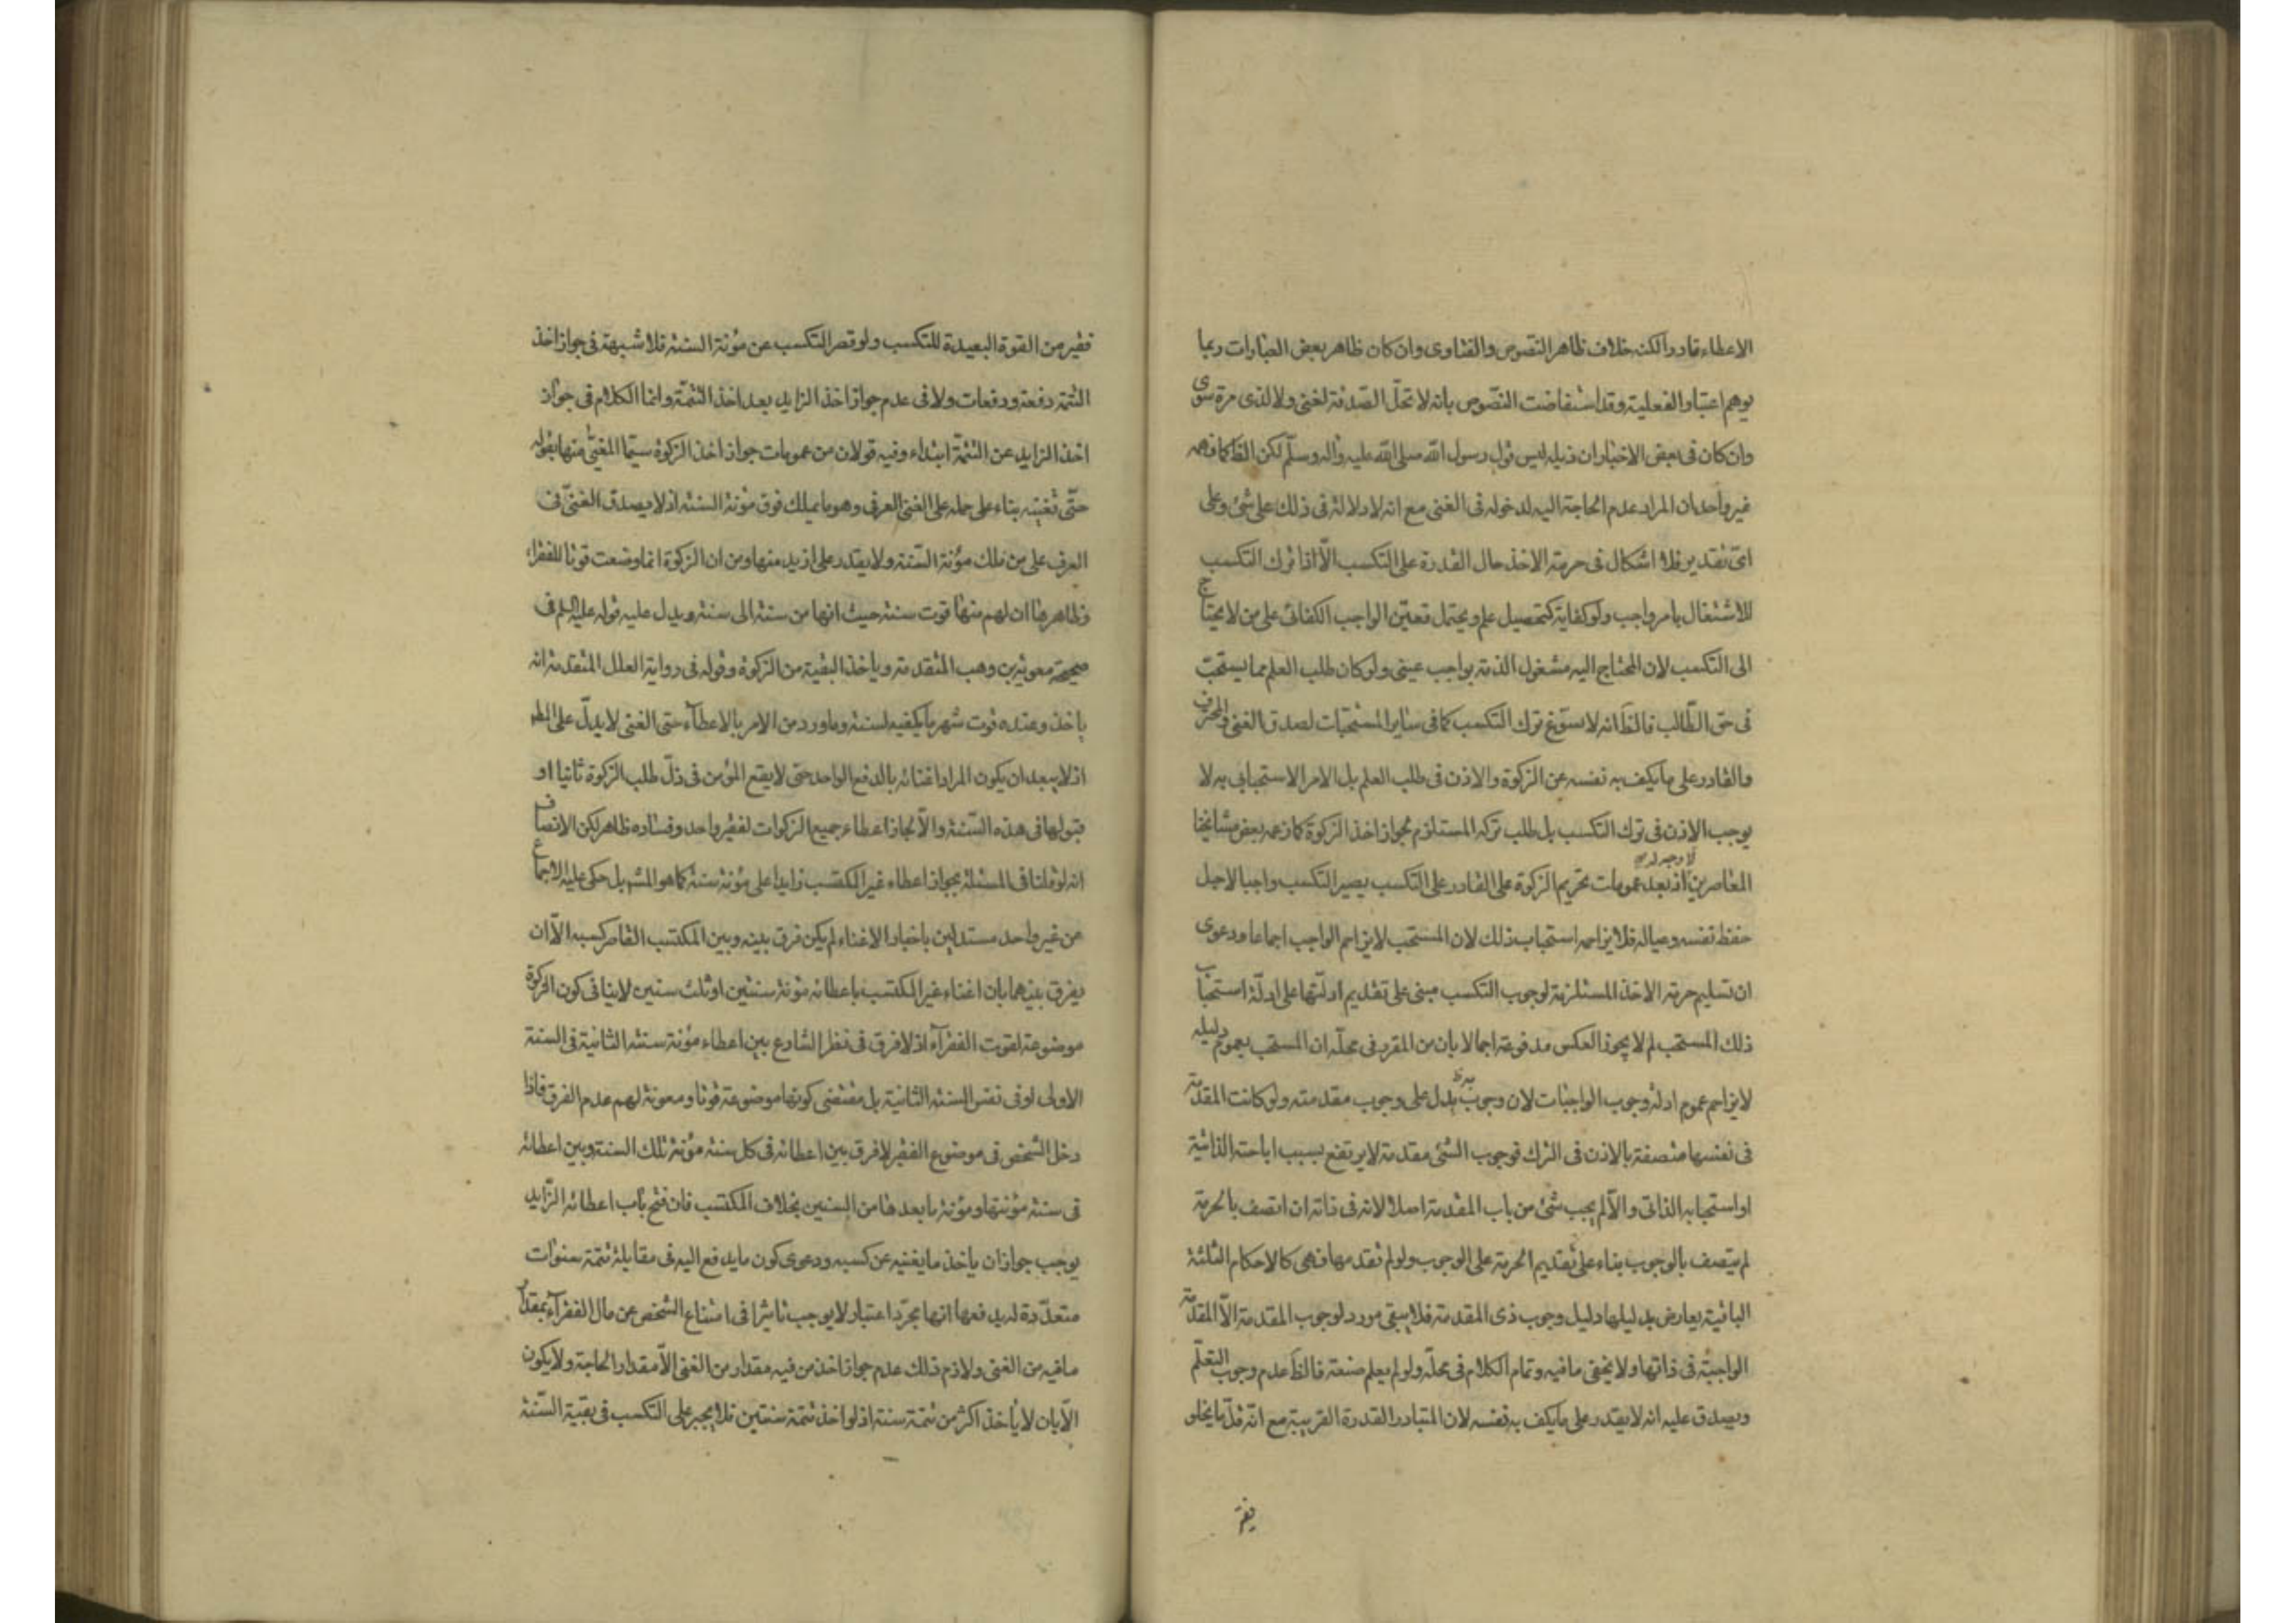 الاعطاء قادرا لكنه خلاف ظاهر النصوص والفتاوى وان كان ظاهر بعض العبارات ربما
يوهم اعتبار الفعلية وقد استفاضت النصوص بانه لا تحل الصدقة لغنى ولا لذى مرة سوى
وان كان فى بعض الاخباران ذيله ليس قول رسول الله صلى الله عليه واله وسلم لكن الظ كما فهمه
غير واحد ان المراد عدم الحاجة اليه لدخوله فى الغنى مع انه لا دلالة فى ذلك على شئ وعلى
اىّ تقدير فلا اشكال فى حرمة الاخذ حال القدرة على التكسب الّا اذا ترك التكسب
للاشتغال بامر واجب ولو كفاية كتحصيل علم ويحتمل تعيّن الواجب الكفائى على من لا يحتاج
الى التكسب لان المحتاج اليه مشغول الذمة بواجب عينى ولو كان طلب العلم مما يستحبّ
فى حق الطّالب فالظّ انه لا يسوّغ ترك التكسب كما فى ساير المستحبّات لصدق الغنى والمحترف
والقادر على ما يكف به نفسه عن الزكوة والاذن فى طلب العلم بل الامر الاستحبابى به لا
يوجب الاذن فى ترك التكسب بل طلب تركه المستلزم لجواز اخذ الزكوة كما زعمه بعض مشايخنا
المعاصرين لا وجه له اذ بعد عمومات تحريم الزكوة على القادر على التكسب يصير التكسب واجبا لاجل
حفظ نفسه وعياله فلا يزاحمه استحباب ذلك لان المستحب لا يزاحم الواجب اجماعا ودعوى
ان تسليم حرمة الاخذ المستلزمة لوجوب التكسب مبنى على تقديم ادلّتها على ادلّة استحباب
ذلك المستحب لم لا يجوز العكس مدفوعة اجمالا بان من المقرر فى محلّه ان المستحب بعموم دليله
لا يزاحم عموم ادلة وجوب الواجبات لان وجوب يدل على وجوب مقدمته ولو كانت المقدمة
فى نفسها متصفة بالاذن فى الترك فوجوب الشئ مقدمة لا يرتفع بسبب اباحته الذاتية
او استحبابه الذاتى والّا لم يجب شئ من باب المقدمة اصلا لانه فى ذاته ان اتصف بالحرمة
لم يتصف بالوجوب بناء على تقديم الحرمة على الوجوب ولو لم نقدمها فهى كالاحكام الثلثة
الباقية يعارض بدليلها دليل وجوب ذى المقدمة فلا يبقى مورد لوجوب المقدمة الّا المقدمة
الواجبة فى ذاتها ولا يخفى ما فيه وتمام الكلام فى محلّه ولو لم يعلم صنعة فالظّ عدم وجوب التعلّم
ويصدق عليه انه لا يقدر على ما يكف به نفسه لان المتبادر القدرة القريبة مع انّه قلّ ما يخلو
فقير من القوة البعيدة للتكسب ولو قصر التكسب عن مؤنة السنة فلا شبهة فى جواز اخذ
التتمة دفعة ودفعات ولا فى عدم جواز اخذ الزايد بعد اخذ التتمّة وانما الكلام فى جواز
اخذ الزايد عن التتمّة ابتداء وفيه قولان من عمومات جواز اخذ الزكوة سيّما المغيّى منها بقوله
حتّى تغنيه بناء على حمله على الغنى العرفى وهو ما يملك فوق مؤنة السنة اذ لا يصدق الغنىّ فى
العرف على من ملك مؤنة السّنة ولا يقدر على ازيد منها ومن ان الزكوة انما وضعت قوتا للفقراء
وظاهرها ان لهم منها قوت سنة حيث انها من سنة الى سنة ويدل عليه قوله عليه السلم فى
صحيحة معوية بن وهب المتقدمة ويأخذ البقية من الزكوة وقوله فى رواية العلل المتقدمة انه
ياخذ وعنده قوت شهر ما يكفيه لسنة وما ورد من الامر بالاعطاء حتى الغنى لا يدلّ على المط
اذ لا يبعد ان يكون المراد اغنائه بالدفع الواحد حتى لا يقع المؤمن فى ذلّ طلب الزكوة ثانيا او
قبولها فى هذه السّنة والّا لجاز اعطاء جميع الزكوات لفقير واحد وفساده ظاهر لكن الانصاف
انه لو قلنا فى المسئلة بجواز اعطاء غير المكتسب زايدا على مؤنة سنة كما هو المشهور بل حكى عليه الاجماع
من غير واحد مستدلين باخبار الاغناء لم يكن فرق بينه وبين المكتسب القاصر كسبه الّا ان
يفرق بينهما بان اغناء غير المكتسب باعطائه مؤنة سنتين او ثلث سنين لا ينافى كون الزكوة
موضوعة لقوت الفقراء اذ لا فرق فى نظر الشارع بين اعطاء مؤنة سنته الثانية فى السنة
الاولى او فى نفس السنة الثانية بل مقتضى كونها موضوعة قوتا ومعونة لهم عدم الفرق فاذا
دخل الشخص فى موضوع الفقير لا فرق بين اعطائه فى كل سنة مؤنة تلك السنة وبين اعطائه
فى سنة مؤنتها ومؤنة ما بعدها من السنين بخلاف المكتسب فان فتح باب اعطائه الزّايد
يوجب جواز ان ياخذ ما يغنيه عن كسبه ودعوى كون ما يدفع اليه فى مقابلة تتمة سنوات
متعدّدة له يدفعها انها مجرّد اعتبار لا يوجب تاثيرا فى امتناع الشخص عن مال الفقراء بمقدار
ما فيه من الغنى ولازم ذلك عدم جواز اخذ من فيه مقدار من الغنى الّا مقدار الحاجة ولا يكون
الّا بان لا يأخذ اكثر من تتمة سنة اذ لو اخذ تتمة سنتين فلا يجبر على التكسب فى بقية السّنة